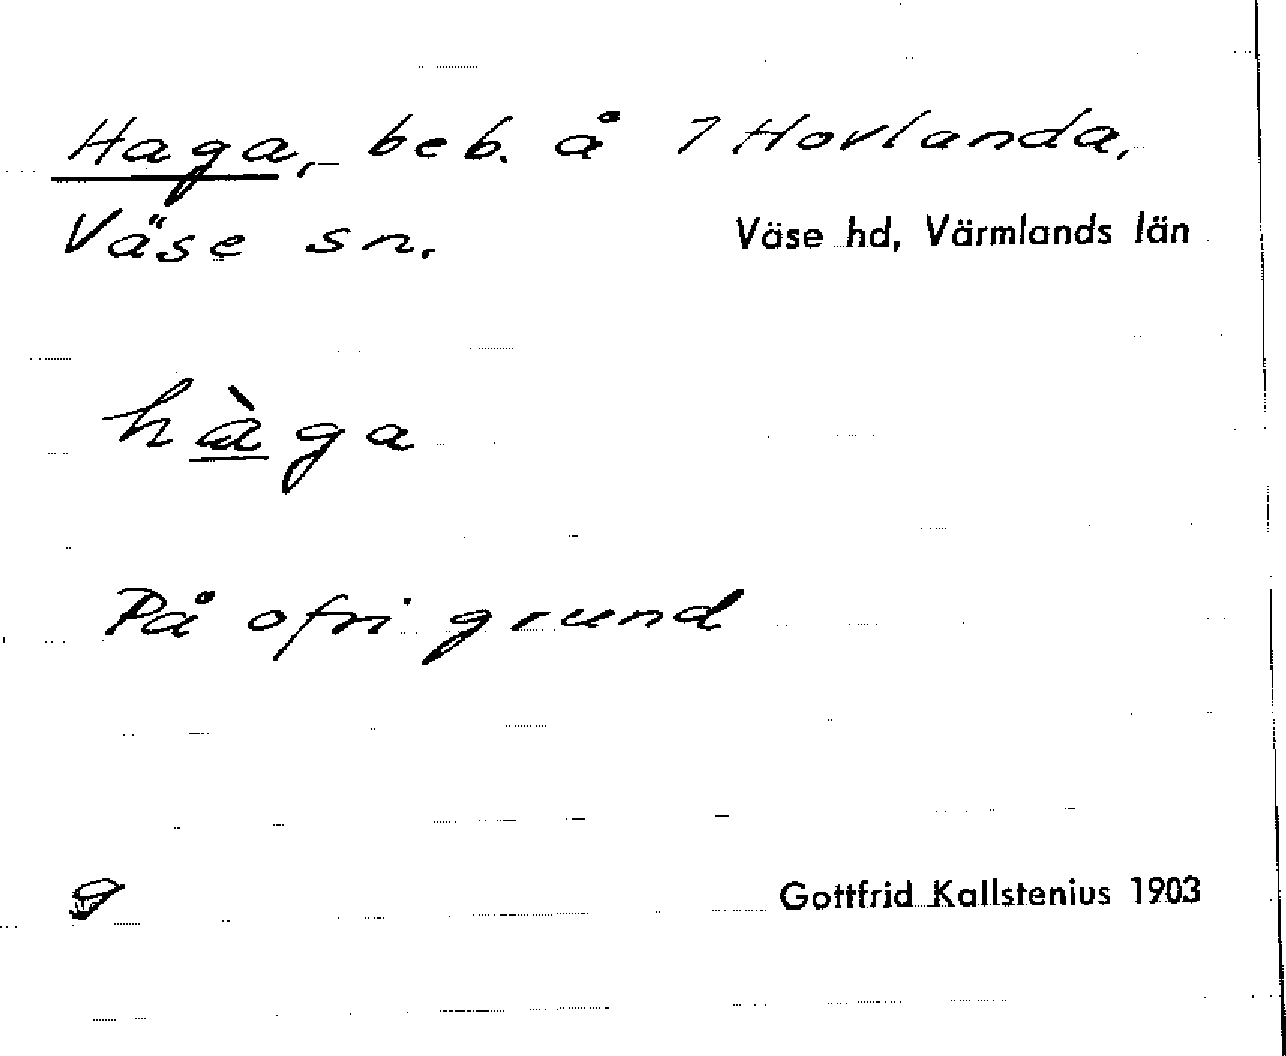 Haga, beb. å 7 Hovlanda,
Väse sn.
Väse hd, Värmlands län
hàga
På ofri grund
Gottfrid Kallstenius 1903